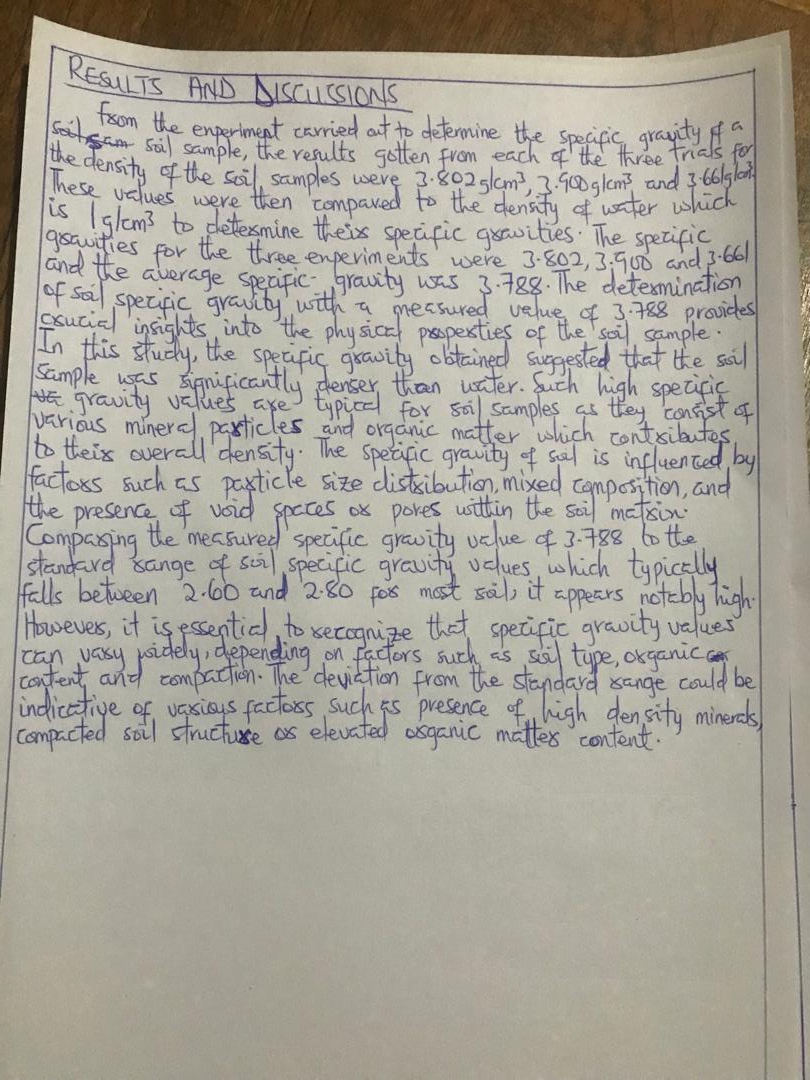 RESULTS AND DISCUSSIONS
From the experiment carried out to determine the specific gravity of a
soil sam soil sample, the results gotten from each of the three trials for
the density of the soil samples were 3.802g/cm³, 3.900g/cm³ and 3.661g/cm³.
These values were then compared to the density of water which
is 1g/cm³ to determine their specific gravities. The specific
gravities for the three experiments were 3.802, 3.900 and 3.661
and the average specific gravity was 3.788. The determination
of soil specific gravity with a measured value of 3.788 provides
crucial insights into the physical properties of the soil sample.
In this study, the specific gravity obtained suggested that the soil
sample was significantly denser than water. Such high specific
gravity values are typical for soil samples as they consist of
various mineral particles and organic matter which contributes
to their overall density. The specific gravity of soil is influenced by
factors such as particle size distribution, mixed composition, and
the presence of void spaces or pores within the soil matrix.
Comparing the measured specific gravity value of 3.788 to the
standard range of soil specific gravity values which typically
falls between 2.60 and 2.80 for most soil, it appears notably high.
However, it is essential to recognize that specific gravity values
can vary widely, depending on factors such as soil type, organic
content and compaction. The deviation from the standard range could be
indicative of various factors such as presence of high density minerals,
compacted soil structure or elevated organic matter content.